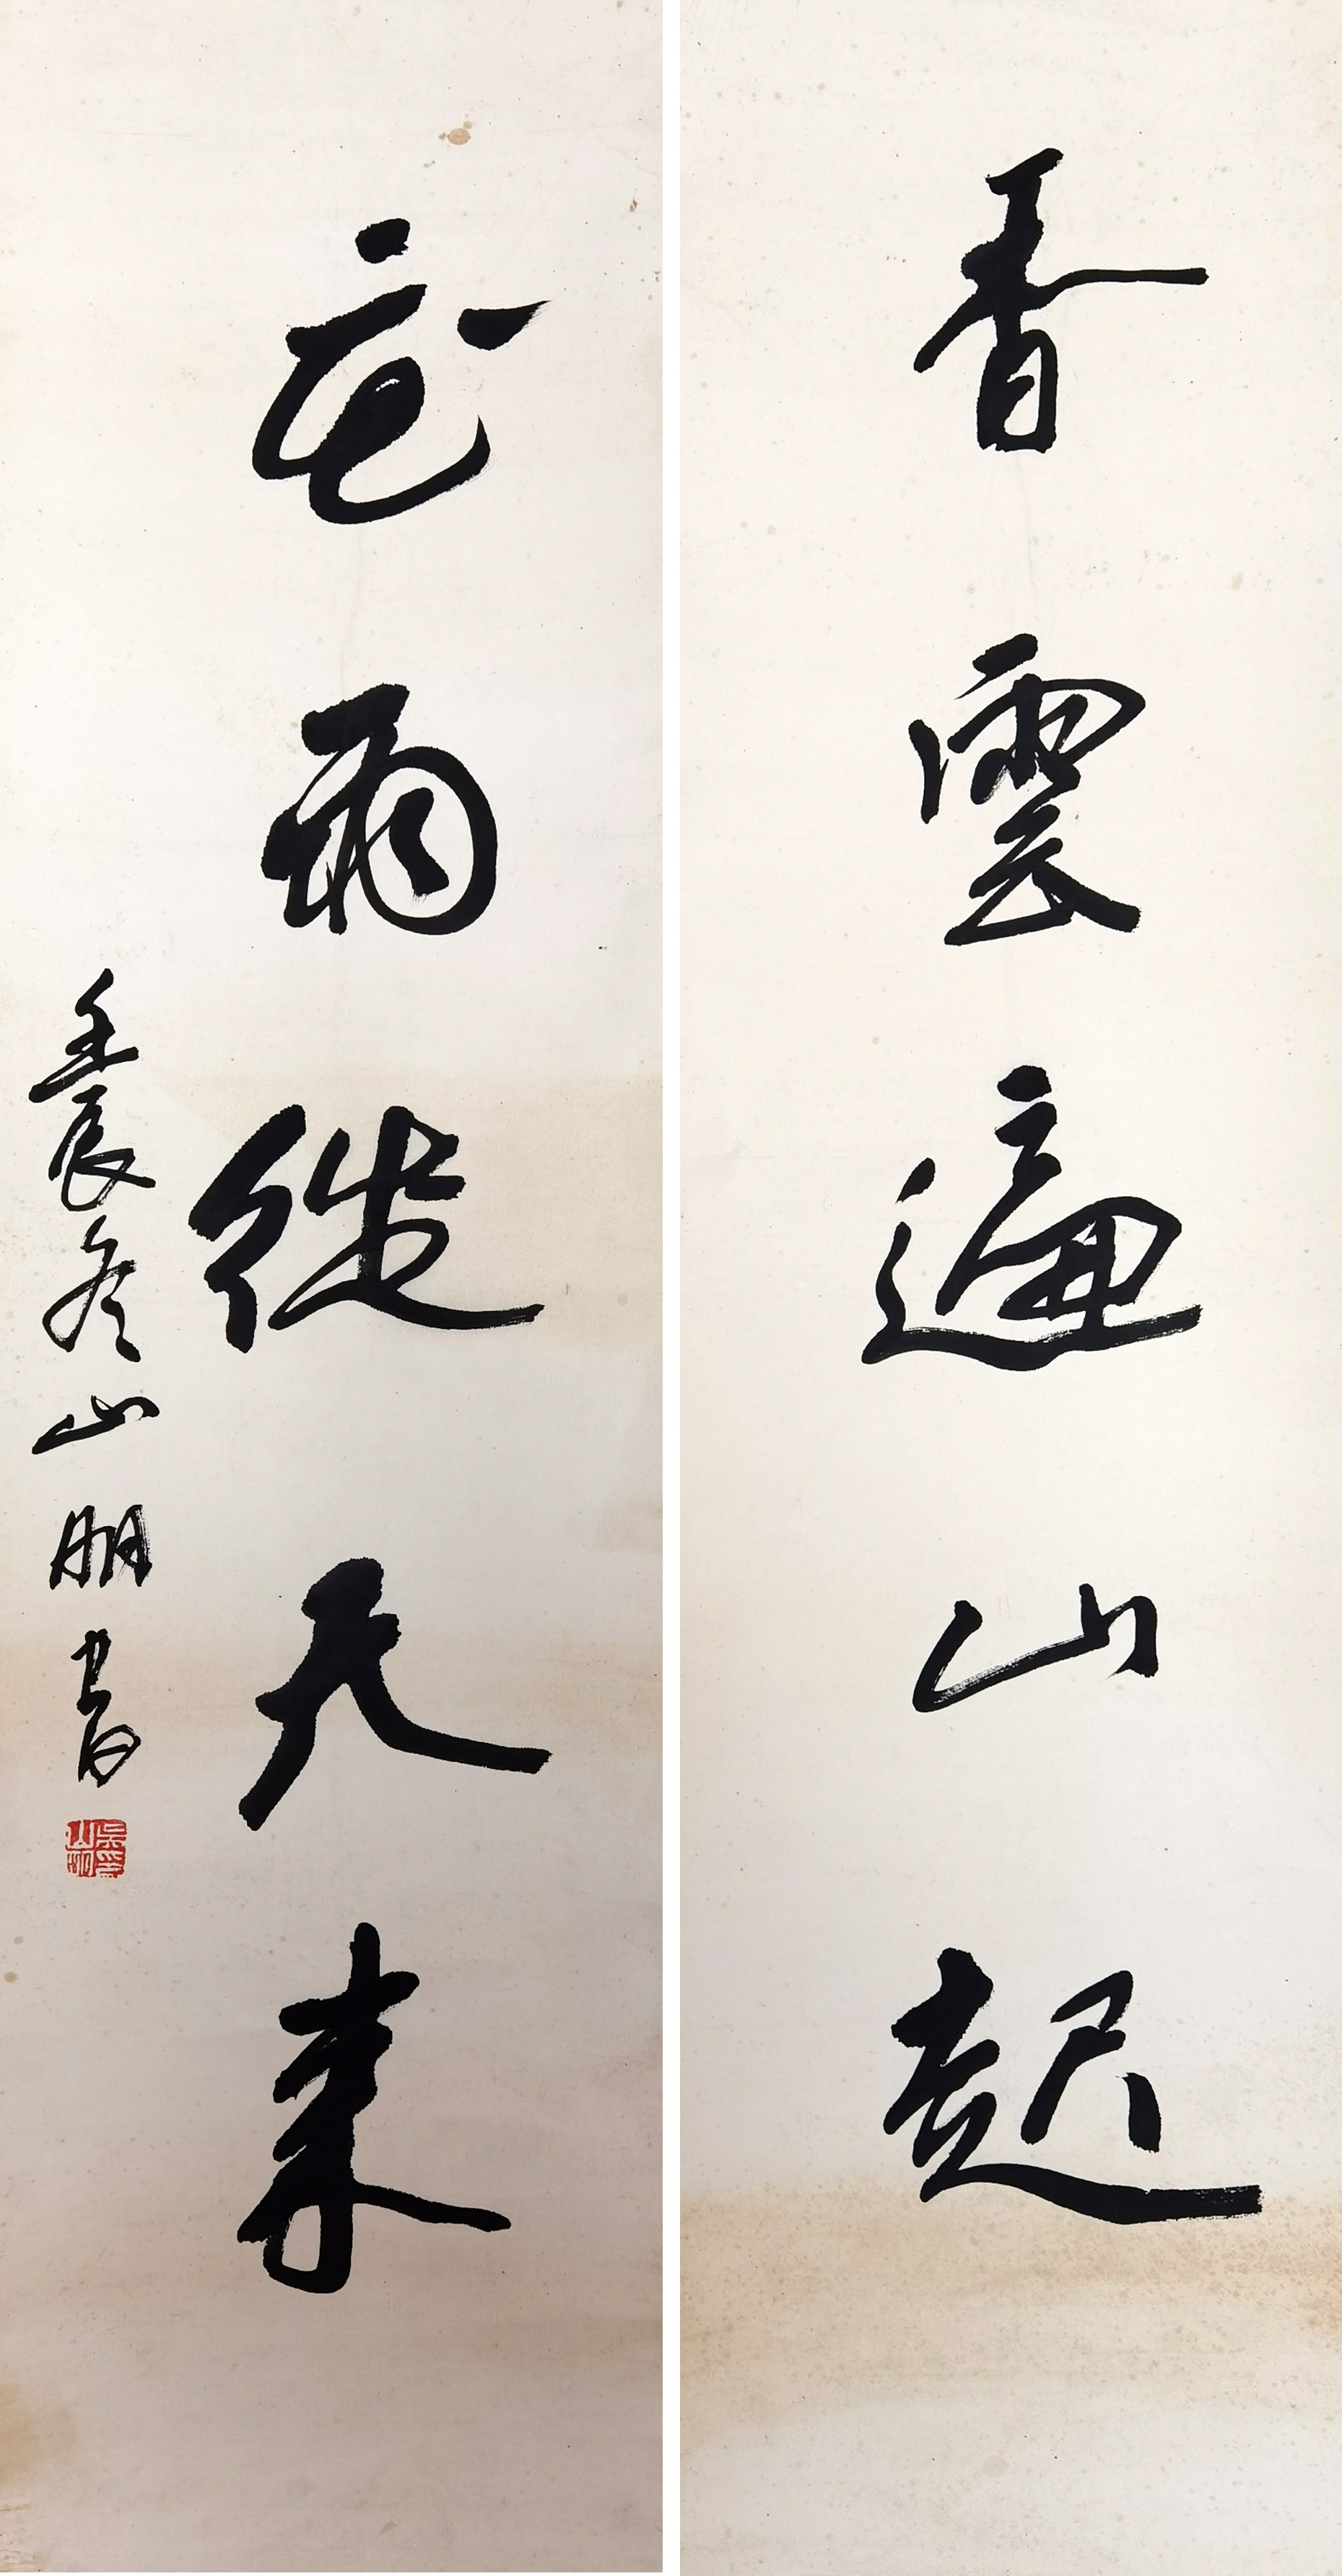 香雲遍山起
花雨從天來
壬辰冬山朋書